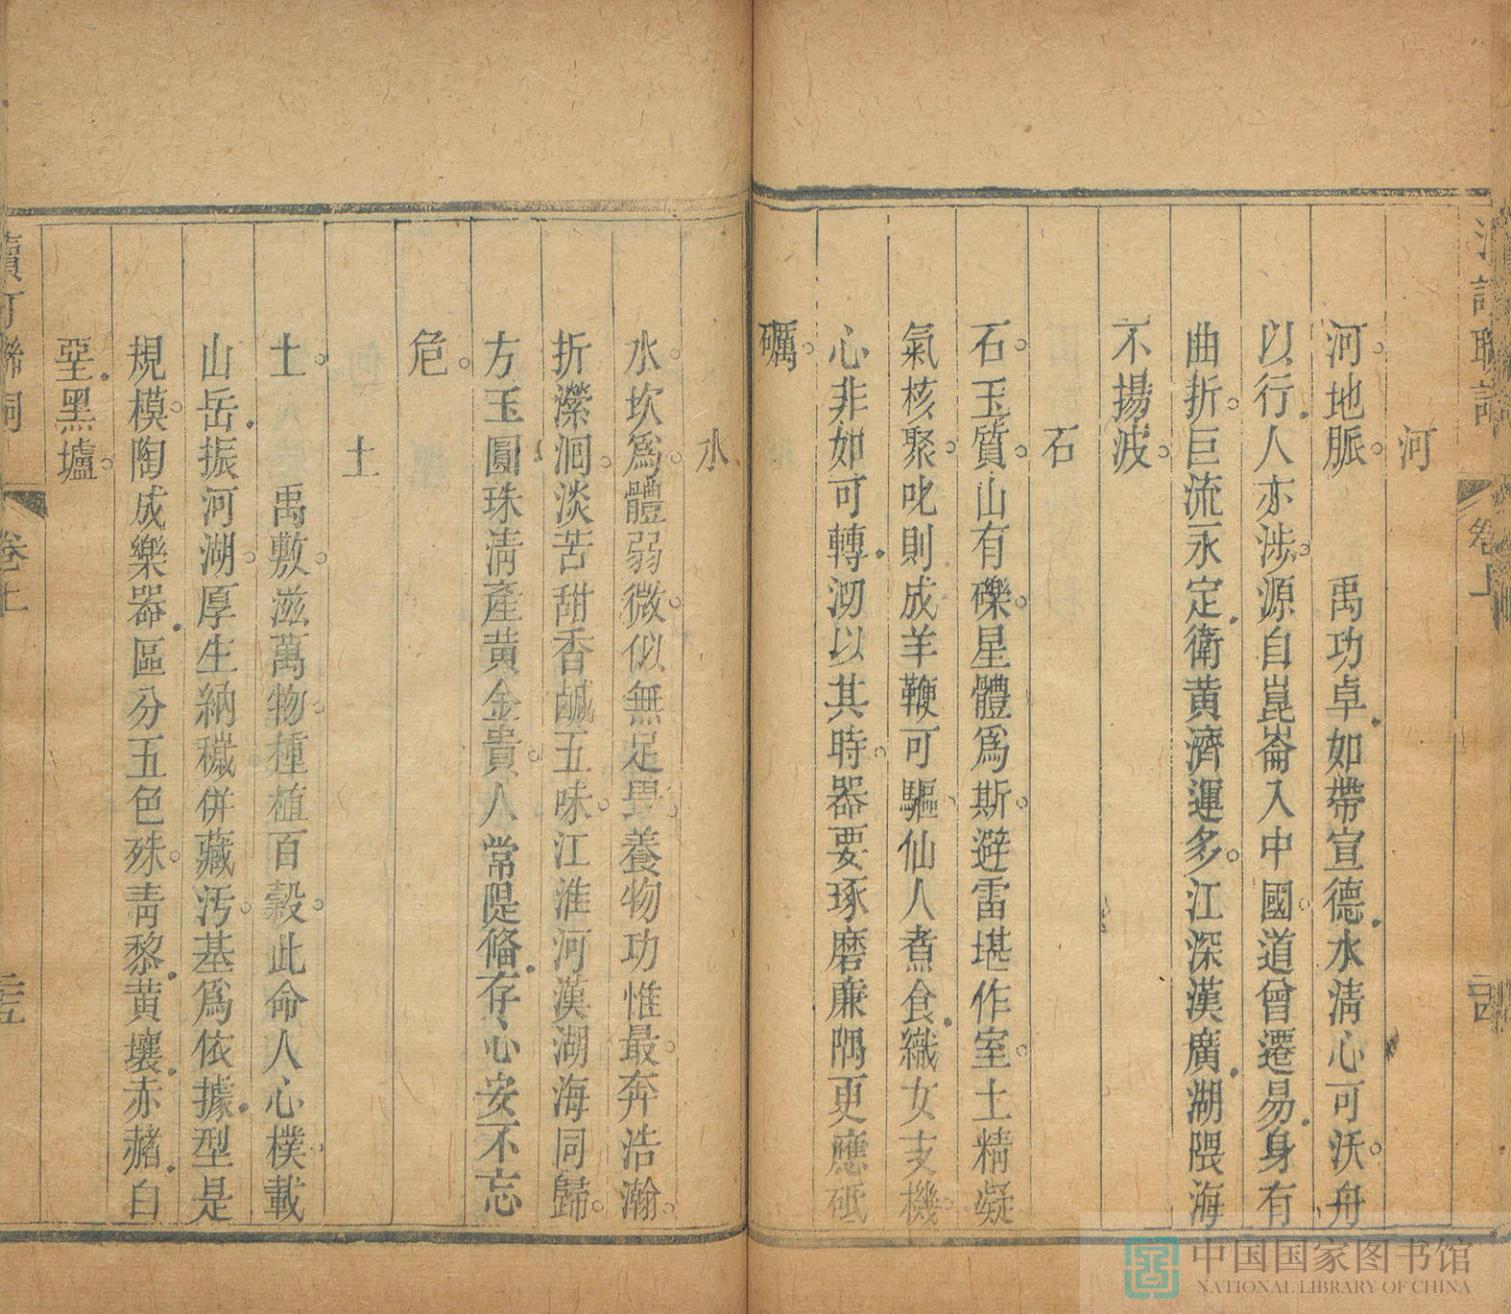 河
河地脈。禹功卓。如帶宣德。水淸心可沃。舟
以行。人亦涉。源自崑崙入中國。道曾遷易。身有
曲折。巨流永定。衛黃濟運多。江深漢廣。湖隈海
不揚波。
石
石。玉質。山有礫。星體爲斯。避雷堪作室。土精凝
氣核聚。叱則成羊鞭可驅。仙人煮食。織女支機。
心非如可轉。沏以其時。器要琢磨廉隅更應砥
礪。
水
水。坎爲。體弱微。似無足畏。養物功惟最。奔浩瀚。
折瀠洄。淡苦甜香鹹五味。江淮河漢湖海同歸。
方玉圓珠淸產黃金貴。人常隄備。存心安不忘
危。
土
土。禹敷。滋萬物。種植百穀。此命人心樸。載
山岳。振河湖。厚生納穢併藏汚。基爲依據。型是
規模。陶成樂器。區分五色殊。靑黎。黃壤。赤赭。白
堊。黑壚。
卷上
二十五
中国国家图书馆
NATIONAL LIBRARY OF CHINA